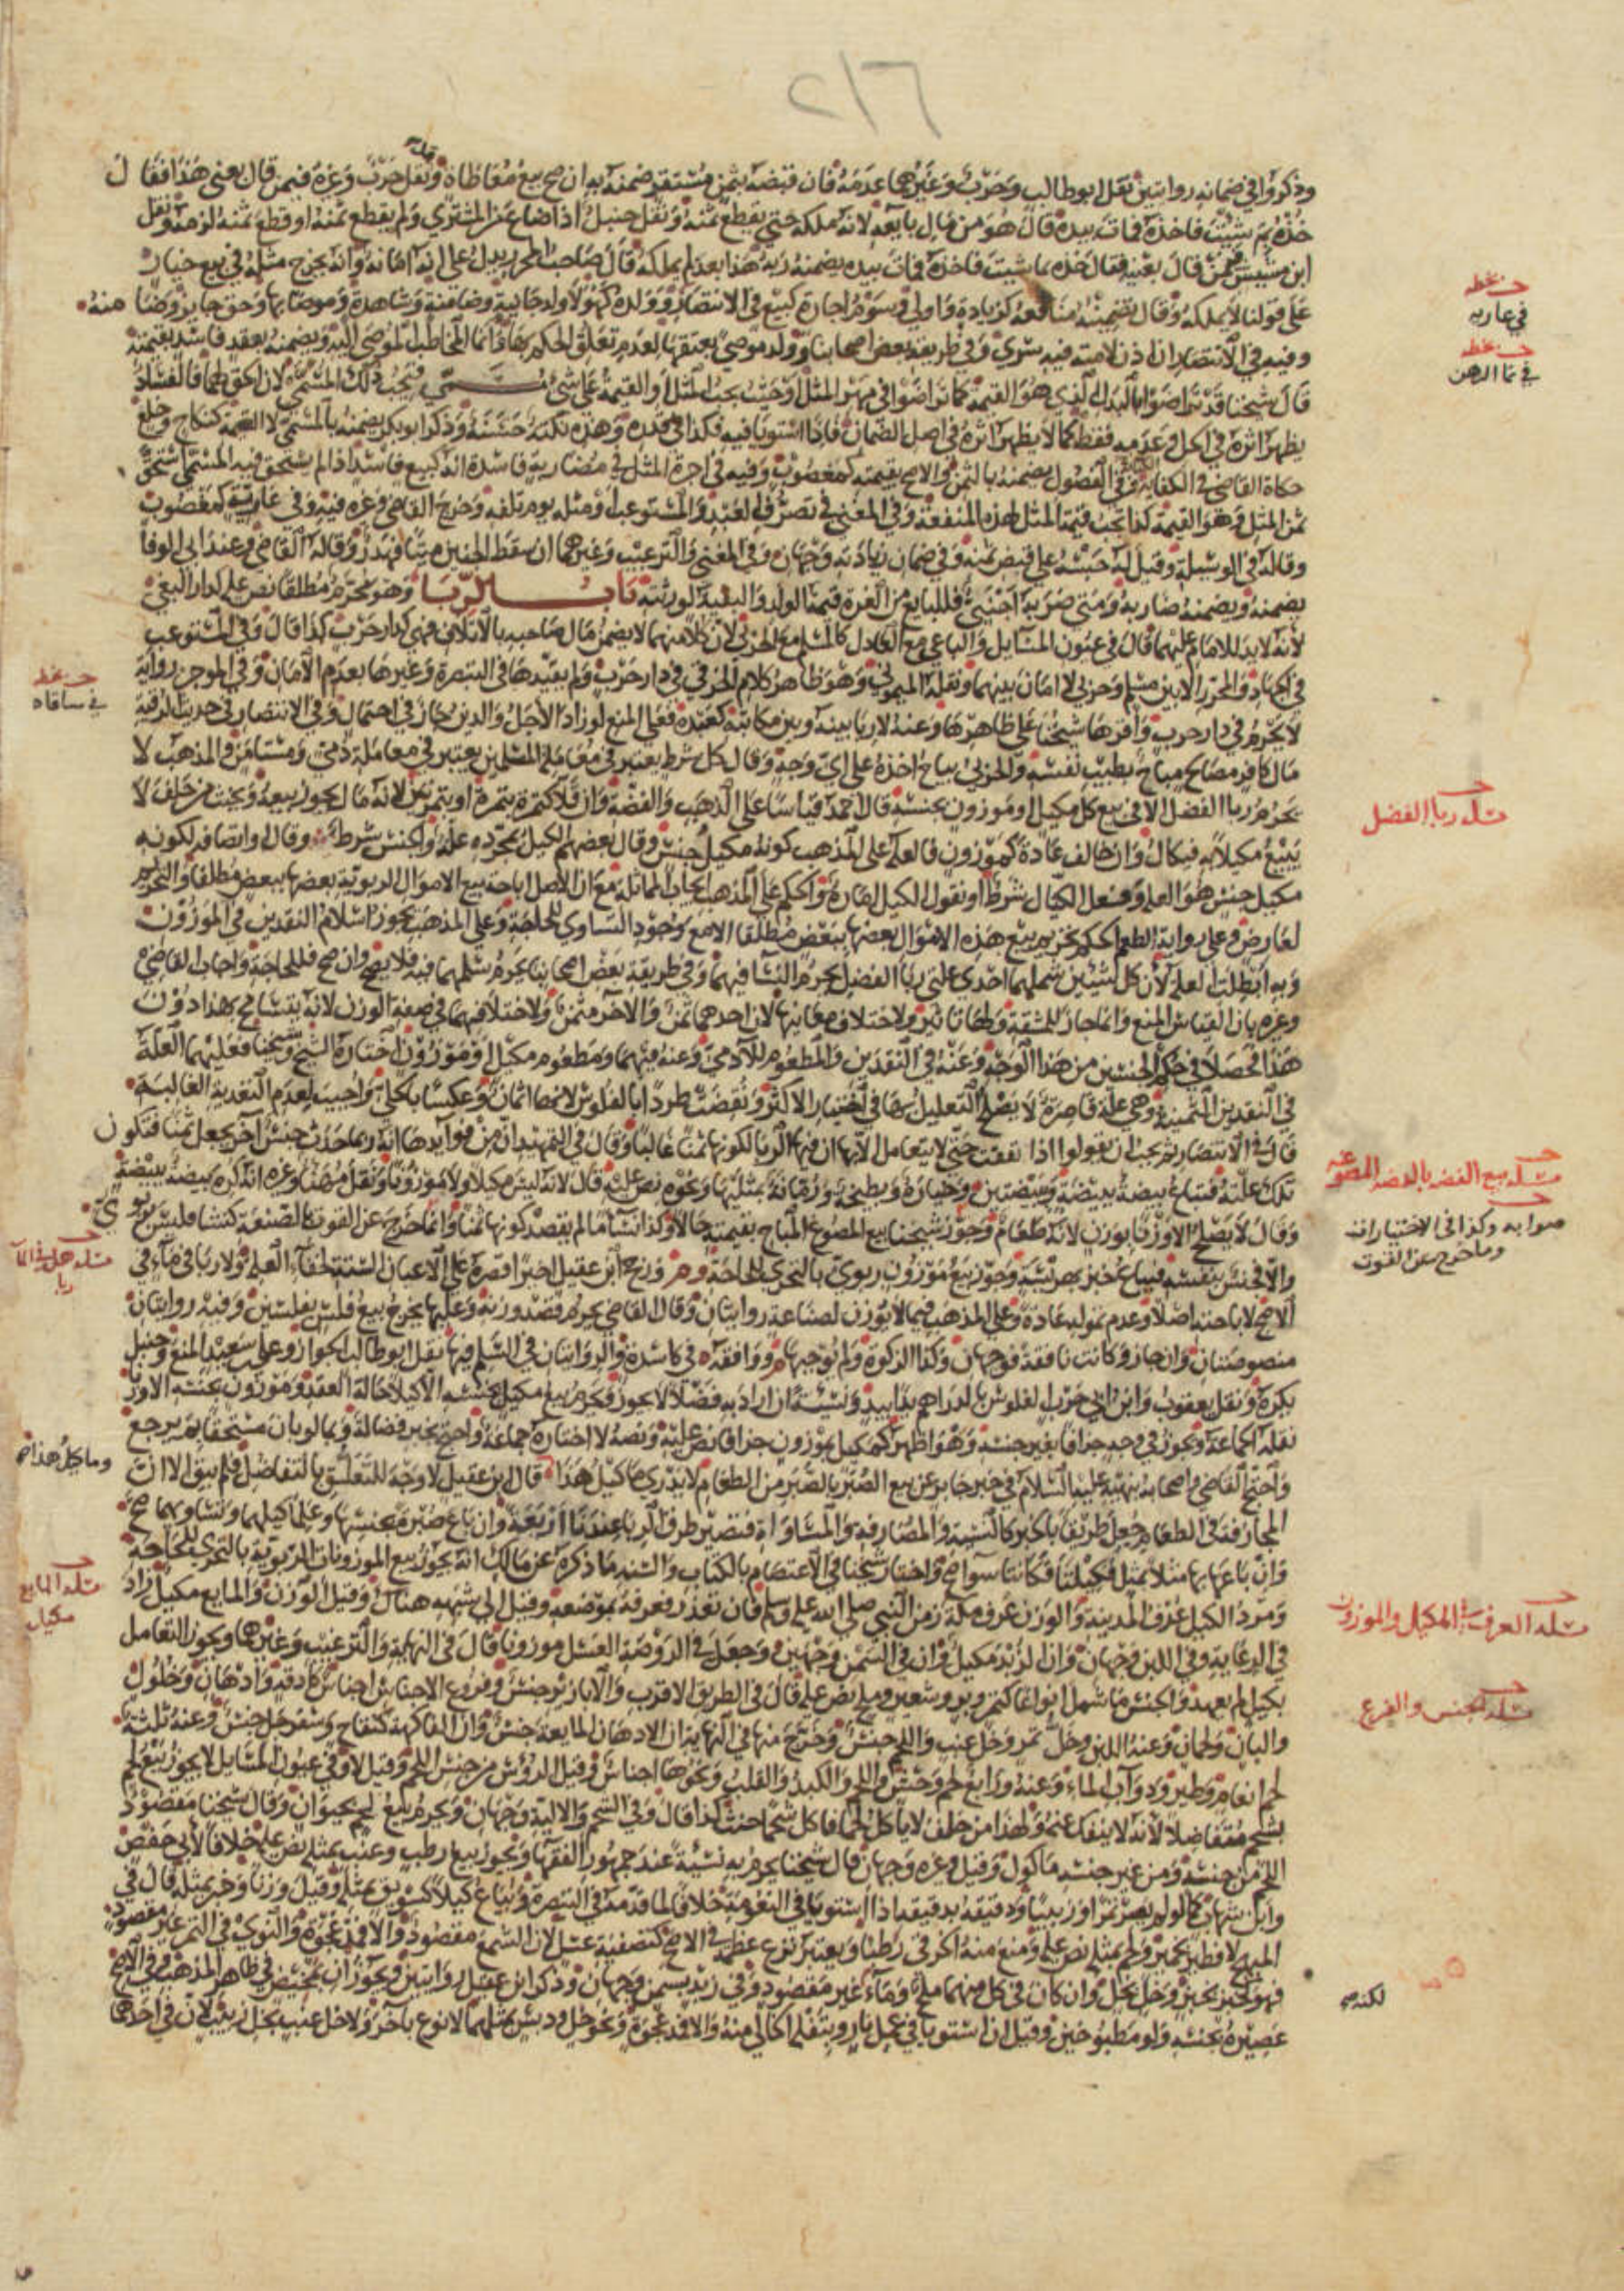 ٢١٦
وذكروا في ضمانه روايتين نقل ابو طالب وحرب وغيرهما عدمه فان قبضه بثمن مستقر ضمنه به ان صح بيع معاطاة ونقل حرب وغيره فيمن قال بعني هذا فقال
خذه بم شئت فاخذه فمات بيده قال هو من مال بايعه لانه ملكه حتى يقطع ثمنه ونقل حنبل اذا ضاع عن المشتري ولم يقطع ثمنه او قطع ثمنه لزمه ونقل
ابن مشيش فيمن قال بعنيه فقال خذه بما شئت فاخذه فمات بيده يضمنه ربه هذا بعد لم يملكه قال صاحب المحرر يدل على انه امانة وانه يخرج مثله في بيع خيار
على قولنا لا يملكه وقال تضمينه منافعه كزيادة واولى وسوم اجارة كبيع في الانتصار وولده كهو لا ولد جانية وضامنة وشاهدة وموصى بها وحق جايز وضمانه
وفيه في الانتصار ان اذن لامته فيه سرى وفي طريقة بعض اصحابنا وولد موصى بعتقها لعدم تعلق الحكم بها وانما المخاطب الموصى اليه ويضمنه بعقد فاسد بقيمته
قال شيخنا قد تراضوا بالبدل الذي هو القيمة كما تراضوا في مهر المثل وحيث يجب المثل او القيمة على شيء مسمى فيجب ذلك المسمى لان الحق لهما فالفساد
يظهر اثره في الحل وعدمه فقط كما لا يظهر اثره في اصل الضمان فاذا استويا فيه فكذا في قدره وهذه نكتة حسنة وذكر ابو بكر يضمنه بالمسمى لا القيمة كنكاح وخلع
حكاه القاضي في الكفاية وفي الفصول يضمنه بالثمن والاصح بقيمته كمغصوب وفيه في اجرة المثل في مضاربة فاسدة انه كبيع فاسد اذا لم يستحق فيه المسمى استحق
ثمن المثل وهو القيمة كذا تجب قيمة المثل لهذه المنفعة وفي المغني في تصرف العبد والمستوعب او مثله يوم تلفه وخرج القاضي وغيره فيه وفي عارية كمغصوب
وقاله في الوسيلة وقيل له حبسه على قبض ثمنه وفي ضمان زيادته وجهان وفي المغني والترغيب وغيرهما ان سقط الجنين ميتا فهدر وقاله القاضي وعند ابي الوفا
يضمنه ويضمنه ضاربه ومتى ضربه اجنبي فللبايع من الغرة قيمة الولد والبقية لورثته باب الربا وهو محرم مطلقا نص عليه كدار البغي
لانه لا يد للامام عليهما قال في عيون المسايل والباغي مع العادل كالمسلم مع الحربي لان كلا منهما لا يضمن مال صاحبه بالاتلاف فهي كدار حرب كذا قال وفي المستوعب
في الجهاد والمحرر الا بين مسلم وحربي لا امان بينهما ونقله الميموني وهو ظاهر كلام الخرقي في دار حرب ولم يقيدها في التبصرة وغيرها بعدم الامان وفي الموجز رواية
لا يحرم في دار حرب واقرها شيخنا على ظاهرها وعنه لا ربا بينه وبين مكاتبه كعبده فعلى المنع لو زاد الاجل والدين جاز في احتمال وفي الانتصار في حديث الرقية
مال كافر مصالح مباح بطيب نفسه والحربي يباح اخذه على اي وجه وقال كل شرط يعتبر في معاملة المسلمين يعتبر في معاملة ذمي ومستامن والمذهب لا
يحرم ربا الفضل الا في بيع كل مكيل او موزون بجنسه قال احمد قياسا على الذهب والفضة وان قل كتمرة بتمرة او بتمرتين لانه مال يجوز بيعه ويحنث من حلف لا
يبيع مكيلا به فيكال وان خالف عادة كموزون فالعلة على المذهب كونه مكيل جنس وقال بعضهم الكيل بمجرده علة والجنس شرط وقال او اتصافه بكونه
مكيل جنس هو العلة وفعل الكيال شرط او نقول الكيل امارة والحكم على المذهب ايجاب المماثلة مع ان الاصل اباحة بيع الاموال الربوية بعضها ببعض مطلقا والتحريم
لعارض وعلى رواية الطعم الحكم تحريم بيع هذه الاموال بعضها ببعض مطلقا الا مع وجود التساوي للحاجة وعلى المذهب يجوز اسلام النقدين في الموزون
وبه ابطلت العلة لان كل شيئين شملهما احدى علتي ربا الفضل يحرم النسا فيهما وفي طريقة بعض اصحابنا يحرم سلمهما فيه فلا يصح وان صح فللحاجة واجاب القاضي
وغيره بان القياس المنع وانما جاز للمشقة ولها تاثير ولاختلاف معانيها لان احدهما ثمن والاخر مثمن ولاختلافهما في صفة الوزن لانه يتسامح بهذا دون
هذا فحصلا في حكم الجنسين من هذا الوجه وعنه في النقدين والمطعوم للادمي وعنه فيهما ومطعوم مكيل او موزون اختاره الشيخ وشيخنا فعليهما العلة
في النقدين الثمنية وهي علة قاصرة لا يصلح التعليل بها في اختيار الاكثر ونقضت طردا بالفلوس لانها اثمان وعكسا بالحلي واجيب لعدم النقدية الغالبة
قال في الانتصار ثم يجب ان يقولوا اذا نفقت حتى لا يتعامل الا بها ان فيها الربا لكونها ثمنا غالبا وقال في التمهيد ان من فوايدها انه ربما حدث جنس اخر يجعل ثمنا فتكون
تلك علته فتباع بيضة ببيضة وبيضتين وخيارة وبطيخة ورمانة بمثليها ونحوه نص عليه قال لانه ليس مكيلا ولا موزونا ونقل مهنا وغيره انه كره بيضة ببيضة
وقال لا يصلح الا وزنا بوزن لانه طعام وجوز شيخنا بيع المصوغ المباح بقيمته حالا وكذا نسا ما لم يقصد كونها ثمنا وانما خرج عن القوت بالصنعة كنشا فليس بربوي
والا فجنس بنفسه فيباع خبز بهريسة وجوز بيع موزون ربوي بالتحري للحاجة ورجح ابن عقيل اخيرا قصره على الاعيان الستة لخفاء العلة ولا ربا في ماء في
الاصح لاباحته اصلا وعدم تموله عادة وعلى المذهب فيما لا يوزن لصناعة روايتان وقال القاضي يحرم قصد وزنه وعليها يخرج بيع فلس بفلسين وفيه روايتان
منصوصتان وان جاز وكانت نافقة فوجهان وكذا الزكوة ولم يوجبها ووافقه في كاسدة والروايتان في السلم فيها نقل ابو طالب الجواز وعلي بن سعيد المنع وحنبل
يكره ونقل يعقوب وابن ابي حرب الفلوس بالدراهم يدا بيد ونسيئة ان اراد به فضلا لا يجوز فيحرم بيع مكيل بجنسه الا كيلا حالة العقد وموزون بجنسه الا وزنا
نقله الجماعة ويجوز في وجه جزافا بغير جنسه وهو اظهر كمكيل بموزون جزافا نص عليه ونصه لا اختاره جماعة واحتج بخبر فضالة وبما لو بان مستحقا بم يرجع
واحتج القاضي واصحابه بنهيه عليه السلام في خبر جابر عن بيع الصبر بالصبر من الطعام لا يدرى ما كيل هذا قال ابن عقيل لا وجه للتعليق بالتفاضل فلم يبق الا ان
المجازفة في الطعام جعل طريقا بالخبر كالنسية والمصارفة والمساواة فتصير طرق الربا عندنا اربعة وان باع صبرة بجنسها وعلما كيلهما وتساويهما صح
وان باعها بها مثلا بمثل فكيلتا فكانتا سوا صح واختار شيخنا في الاعتصام بالكتاب والسنة ما ذكره عن مالك انه يجوز بيع الموزونات الربوية بالتحري للحاجة
ومرد الكيل عرف المدينة والوزن عرف مكة زمن النبي صلى الله عليه وسلم فان تعذر فعرفه بموضعه وقيل الى شبهه هناك وقيل الوزن والمايع مكيل زاد
في الرعاية وفي اللبن وجهان وان الزبد مكيل وان في السمن وجهين وجعل في الروضة العسل موزونا قال في النهاية والترغيب وغيرهما ويجوز التعامل
بكيل لم يعهد والجنس ما شمل انواعا كتمر وبر وشعير وملح نص عليه قال في الطريق الاقرب والابازير جنس وفروع الاجناس اجناس كادقة وادهان وخلول
والبان ولحمان وعنه اللبن وخل تمر وخل عنب واللحم جنس وخرج منها في النهاية ان الادهان المايعة جنس وان الفاكهة كتفاح وسفرجل جنس وعنه ثلثة
لحم انعام وطير ودواب الماء وعنه ورابع لحم وحش واللحم والكبد والقلب ونحوها اجناس وقيل الرؤس من جنس اللحم وقيل لا وفي عيون المسايل لا يجوز بيع لحم
بشحم متفاضلا لانه لا ينفك عنه ولهذا من حلف لا ياكل لحما فاكل شحما حنث كذا قال وفي الشحم والالية وجهان ويحرم بيع لحم بحيوان وقال شيخنا مقصود
اللحم من جنسه ومن غير جنسه ماكول وقيل وغيره وجهان قال شيخنا يحرم به نسئة عند جمهور الفقها ويجوز بيع رطب وعنب بمثله نص عليه خلافا لابي حفص
وابن شهاب كما لو لم يصر تمرا وزبيبا ودقيقه بدقيقه اذا استويا في النعومة خلافا لما قدمه في التبصرة ويباع كيلا كسويق بمثله وقيل وزنا وخبز بمثله قال في
المبهج لا فطير بخمير ولحم بمثله نص عليه ومنع منه الخرقي رطبا ويعتبر نزع عظمه في الاصح كتصفية عسل لان الشمع مقصود والا فمد عجوة والنوى في التمر غير مقصود
فهو كخبز بخبز وخل بخل وان كان في كل منهما ملح وماء غير مقصود وفي زبد بسمن وجهان وذكر ابن عقيل روايتين ويجوز ان بمخيض في ظاهر المذهب وفي الاصح
عصيره بجنسه ولو مطبوخين وقيل ان استويا في عمل نار وبتفله الخالي منه والا فمد عجوة ونحو خل ودبس بمثلهما لا نوع باخر ولا خل عنب بخل زبيب لان في احدهما
بخطه
في عارية
بخطه
في نما الرهن
بخطه
في مساقاه
مسلة ربا الفضل
مسلة بيع الفضة بالفضة المصوغة
صوابه وكذا في الاختيارات
وما خرج عن القوت
مسلة هل في الماء
ربا
وما كيل هذا صح
مسلة المايع
مكيل
مسلة العرف في المكيل والموزون
مسلة الجنس والفرع